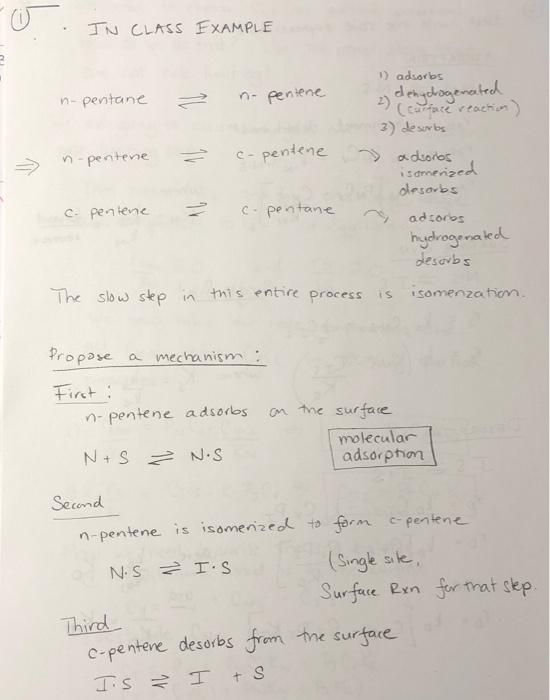 ① . IN CLASS EXAMPLE
n-pentane ⇌ n-pentene 1) adsorbs
2) dehydrogenated
(surface reaction)
3) desorbs
⇒ n-pentene ⇌ c-pentene → adsorbs
isomerized
desorbs
c-pentene ⇌ c-pentane → adsorbs
hydrogenated
desorbs
The slow step in this entire process is isomerization.
Propose a mechanism :
First :
n-pentene adsorbs on the surface
N + S ⇌ N·S molecular
adsorption
Second
n-pentene is isomerized to form c-pentene
N·S ⇌ I·S (Single site,
Surface Rxn for that step.
Third
c-pentene desorbs from the surface
I·S ⇌ I + S